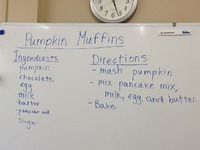 Pumpkin Muffins
Ingredients
pumpkin
chocolate
egg
milk
butter
pancake mix
sugar
Directions
- mash pumpkin
- mix pancake mix,
milk, egg, and butter.
- Bake